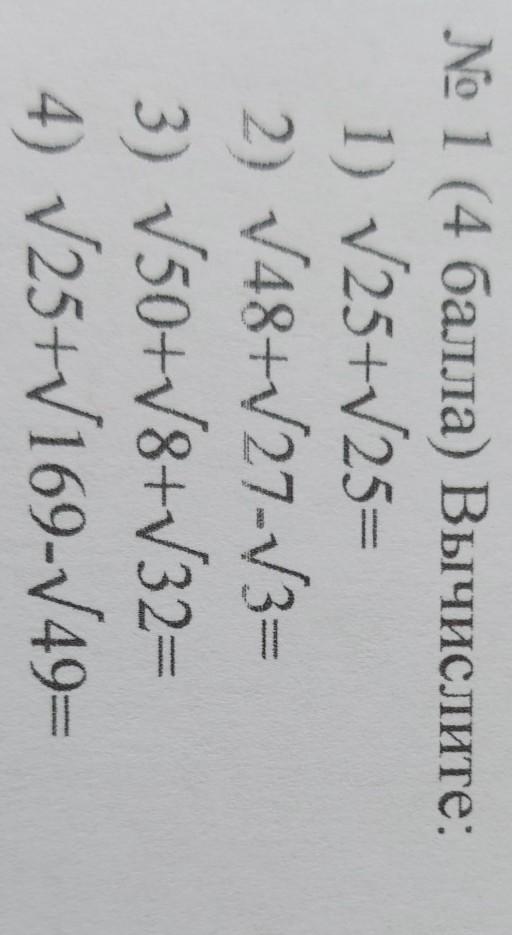 № 1 (4 балла) Вычислите:
1) √25+√25=
2) √48+√27-√3=
3) √50+√8+√32=
4) √25+√169-√49=